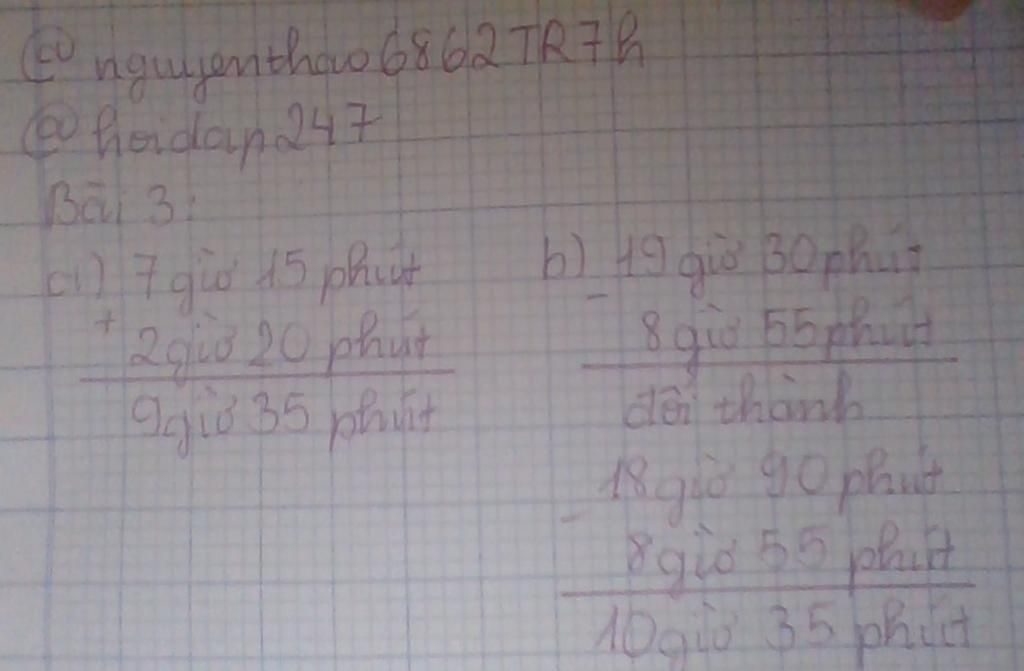 @ nguyenthao6862TR7h
@ hoidap247
Bài 3:
a) 7 giờ 15 phút
+
2 giờ 20 phút
9 giờ 35 phút
b) 19 giờ 30 phút
-
8 giờ 55 phút
đổi thành
18 giờ 90 phút
-
8 giờ 55 phút
10 giờ 35 phút